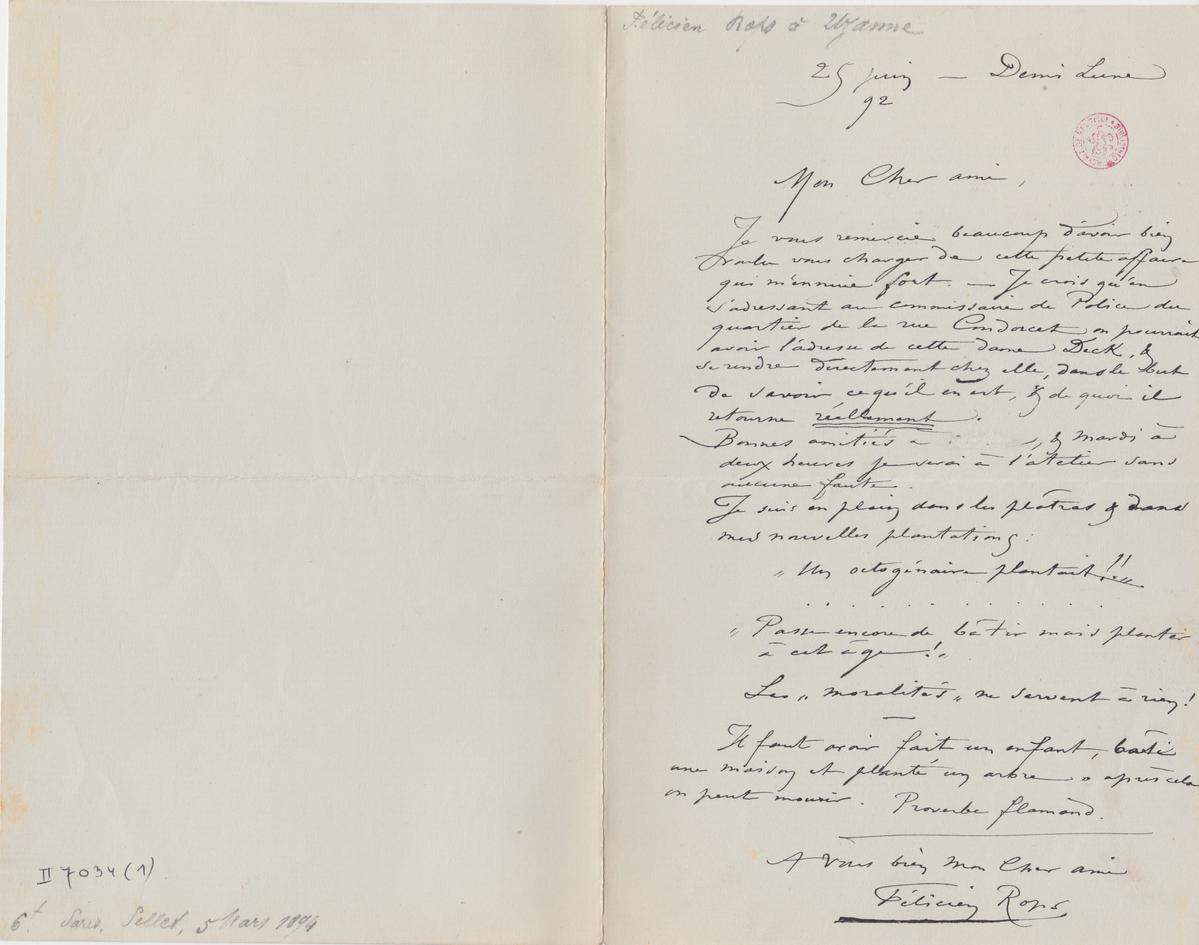 Félicien Rops à Uzanne
25 juin — Demi Lune
92
Mon Cher ami,
Je vous remercie beaucoup d'avoir bien
voulu vous charger de cette petite affaire
qui m'ennuie fort. — Je crois qu'en
s'adressant au commissaire de Police du
quartier de la rue Condorcet on pourrait
avoir l'adresse de cette dame Deck, &
se rendre directement chez elle, dans le but
de savoir ce qu'il en est, & de quoi il
retourne réellement.
Bonnes amitiés à , & mardi à
deux heures je serai à l'atelier sans
aucune faute.
Je suis en plein dans les plâtras & dans
mes nouvelles plantations:
„ Un octogénaire plantait!!„
. . . . . . . . . . .
„ Passe encore de bâtir mais planter
à cet âge!„
Les „ moralités „ ne servent à rien!
—
Il faut avoir fait un enfant, bâti
une maison et planté un arbre » après cela
on peut mourir. Proverbe flamand.
A Vous bien mon Cher ami
Félicien Rops
II 7034 (1)
5 Mars 1894